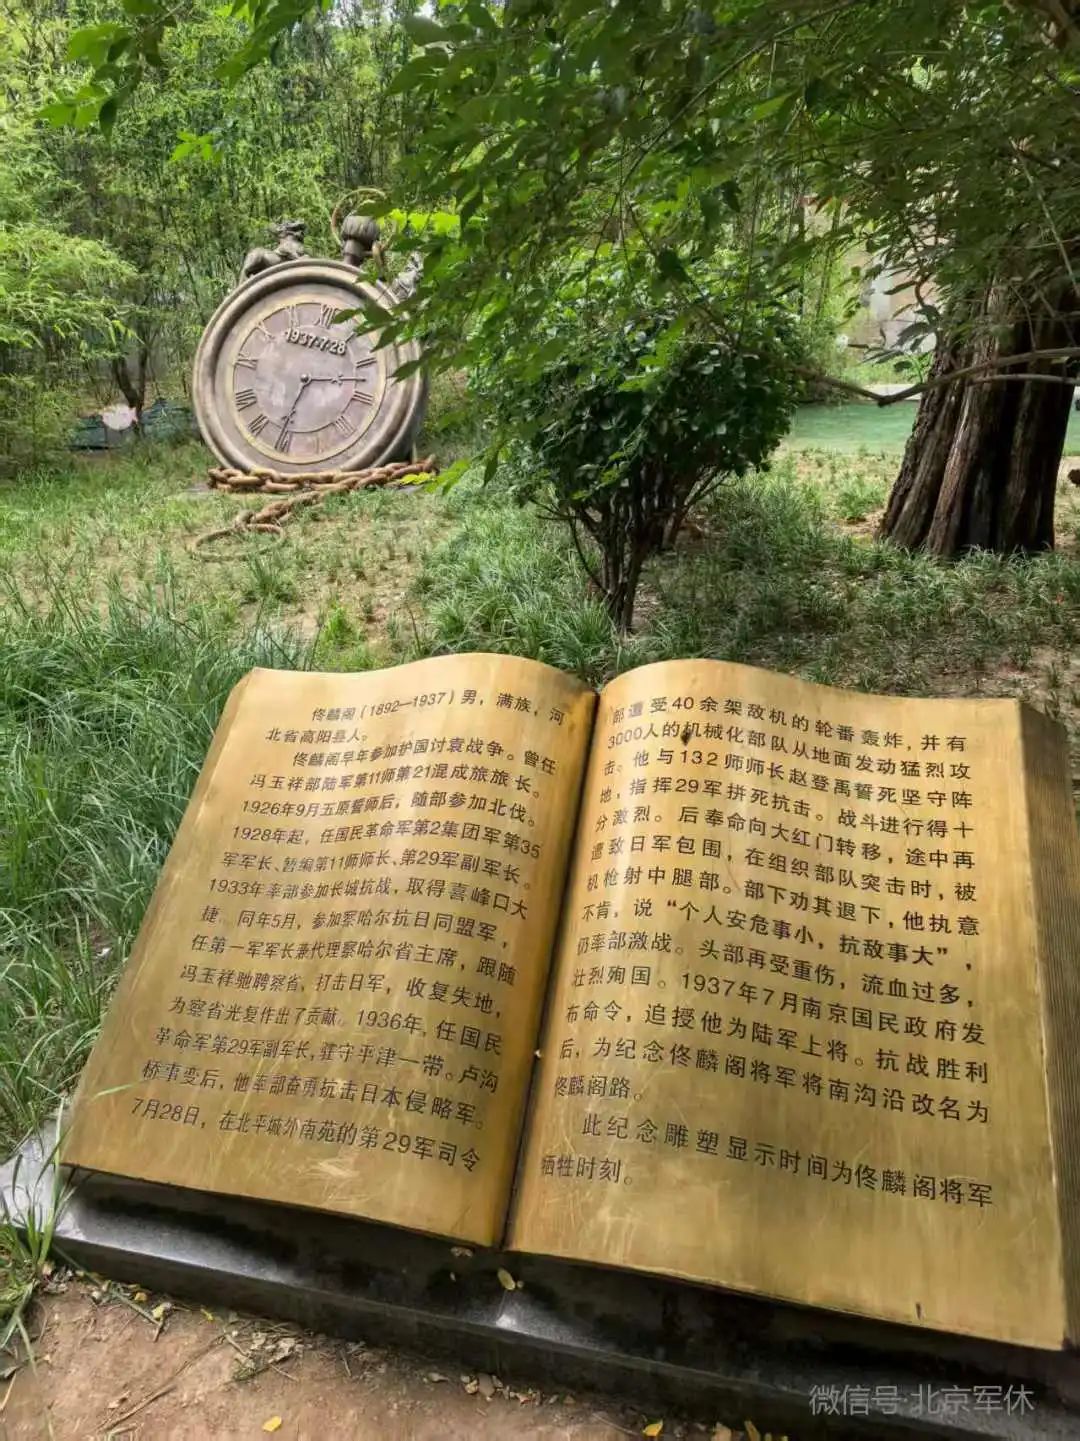 XII
1937·7·28
佟麟阁（1892—1937）男，满族，河
北省高阳县人。
佟麟阁早年参加护国讨袁战争。曾任
冯玉祥部陆军第11师第21混成旅旅长。
1926年9月五原誓师后，随部参加北伐。
1928年起，任国民革命军第2集团军第35
军军长、暂编第11师师长、第29军副军长。
1933年率部参加长城抗战，取得喜峰口大
捷。同年5月，参加察哈尔抗日同盟军，
任第一军军长兼代理察哈尔省主席，跟随
冯玉祥驰骋察省，打击日军，收复失地，
为察省光复作出了贡献。1936年，任国民
革命军第29军副军长，驻守平津一带。卢沟
桥事变后，他率部奋勇抗击日本侵略军。
7月28日，在北平城外南苑的第29军司令
部遭受40余架敌机的轮番轰炸，并有
3000人的机械化部队从地面发动猛烈攻
击。他与132师师长赵登禹誓死坚守阵
地，指挥29军拼死抗击。战斗进行得十
分激烈。后奉命向大红门转移，途中再
遭致日军包围，在组织部队突击时，被
机枪射中腿部。部下劝其退下，他执意
不肯，说“个人安危事小，抗敌事大”，
仍率部激战。头部再受重伤，流血过多，
壮烈殉国。1937年7月南京国民政府发
布命令，追授他为陆军上将。抗战胜利
后，为纪念佟麟阁将军将南沟沿改名为
佟麟阁路。
此纪念雕塑显示时间为佟麟阁将军
牺牲时刻。
微信号·北京军休